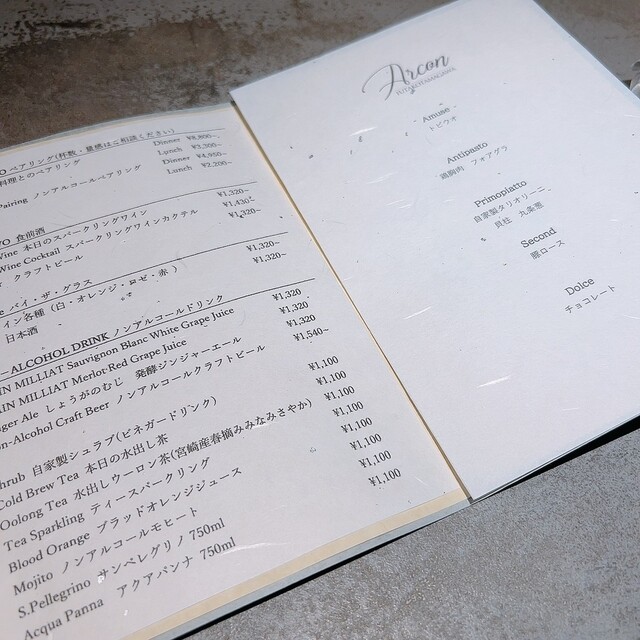 ペアリング(杯数・量感はご相談ください)
料理とのペアリング Dinner ¥8,800~
Lunch ¥3,300~
Pairing ノンアルコールペアリング Dinner ¥4,950~
Lunch ¥2,200~
食前酒
Wine 本日のスパークリングワイン ¥1,320~
Wine Cocktail スパークリングワインカクテル ¥1,430~
クラフトビール ¥1,320~
バイ・ザ・グラス
イン各種 (白・オレンジ・ロゼ・赤) ¥1,320~
日本酒 ¥1,320~
ALCOHOL DRINK ノンアルコールドリンク
MILLIAT Sauvignon Blanc White Grape Juice ¥1,320
MILLIAT Merlot Red Grape Juice ¥1,320
Ale しょうがのむじ 発酵ジンジャーエール ¥1,320
Alcohol Craft Beer ノンアルコールクラフトビール ¥1,540~
自家製シュラブ(ビネガードリンク) ¥1,100
Cold Brew Tea 本日の水出し茶 ¥1,100
Oolong Tea 水出しウーロン茶(宮崎産春摘みみなみさやか) ¥1,100
Tea Sparkling ティースパークリング ¥1,100
Blood Orange ブラッドオレンジジュース ¥1,100
Mojito ノンアルコールモヒート ¥1,100
S.Pellegrino サンペレグリノ 750ml ¥1,100
Acqua Panna アクアパンナ 750ml ¥1,100
Arcon
Amuse
トビウオ
Antipasto
鶏胸肉 フォアグラ
Primopiatto
自家製タリオリーニ
貝柱 九条葱
Second
豚ロース
Dolce
チョコレート